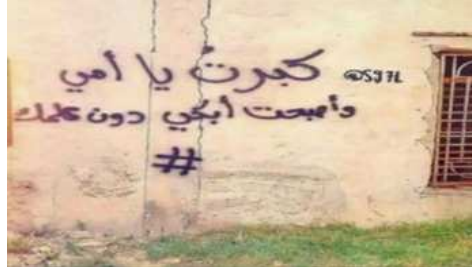 كبرتُ يا أمي @SJ7L
وأصبحت أبكي دون علمك
#